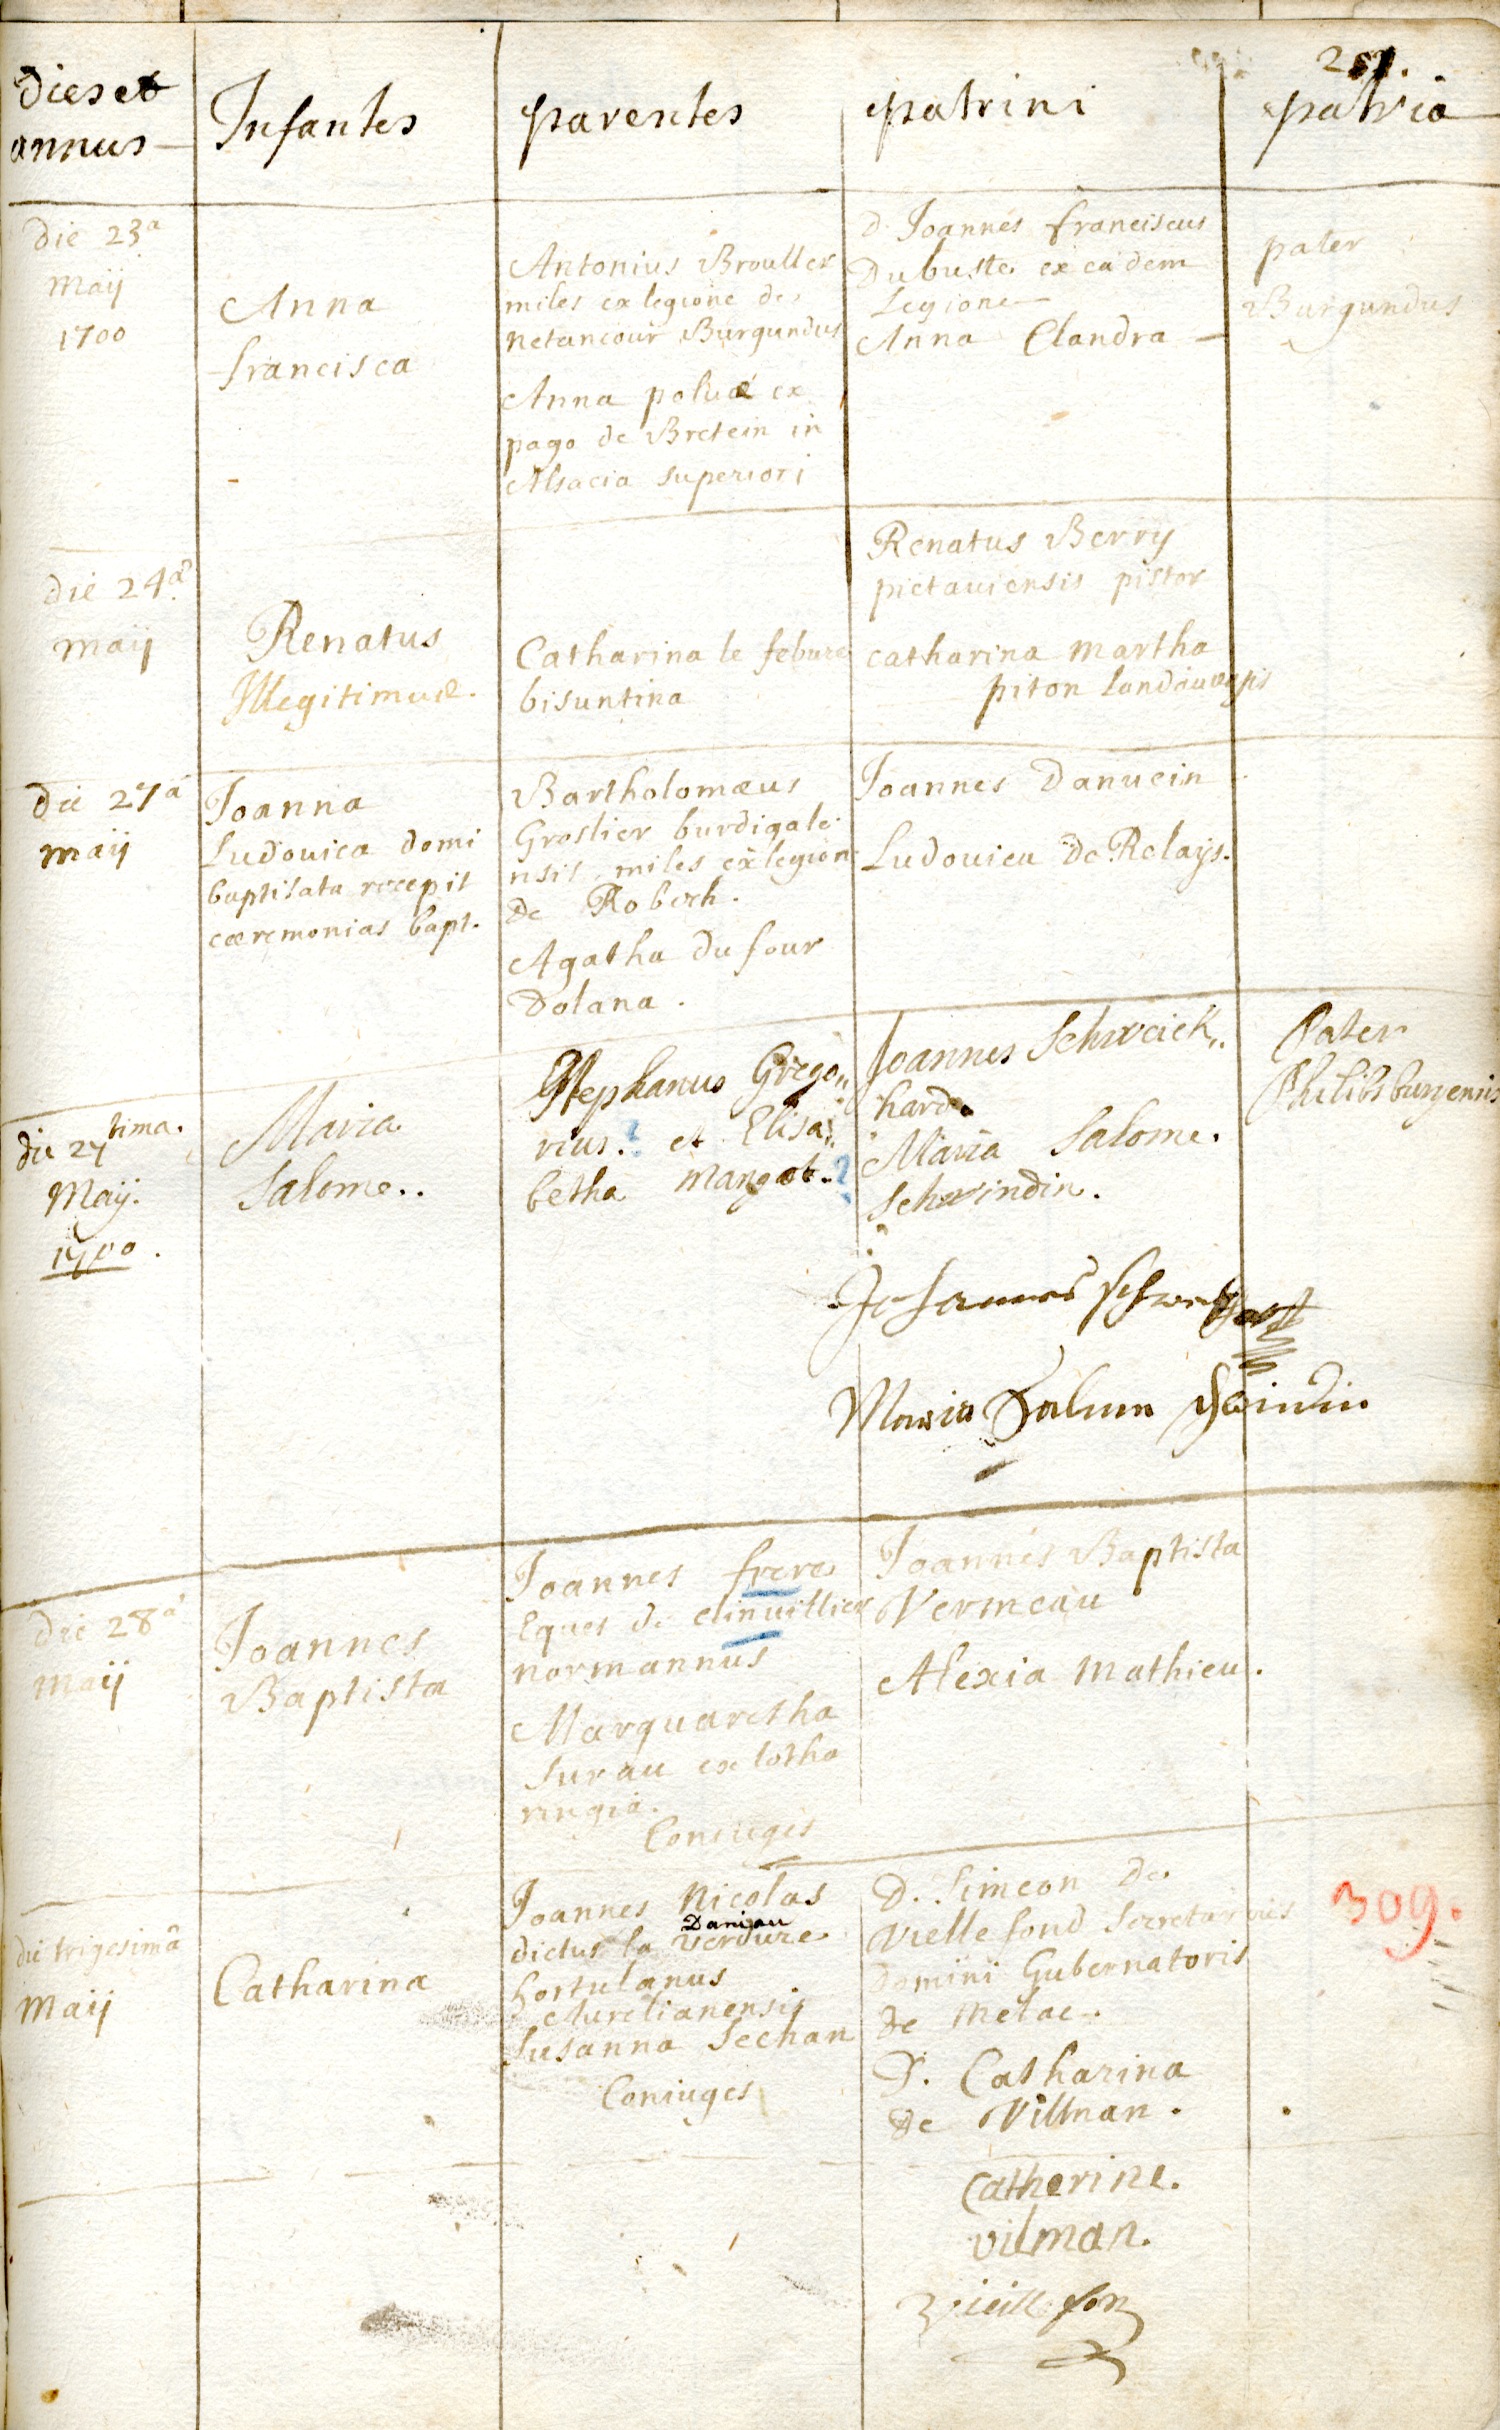 dies et
annus
Infantes
parentes
patrini
patria
die 23a
Maij
1700
Anna
francisca
Antonius Broutter
miles ex legione de
netancour Burgundus
Anna
pago de Bretein in
Alsacia superiori
D. Joannes franciscus
Dubuste ex eadem
Legione
Anna Clandra
pater
Burgundus
die 24a
maij
Renatus
Illegitimus.
Catharina le febure
bisuntina
Renatus Berry
pictauiensis pistor
catharina Martha
piton landauensis
die 27a
maij
Joanna
Ludouica domi
baptisata recepit
caeremonias bapt.
Bartholomaeus
Groslier burdigale
nsis miles ex legion
de Robech.
Agatha du four
Dolana.
Joannes Danuein
Ludouica De Relays.
die 27tima.
Maij.
1700.
Maria
Salome..
Stephanus Grego„
rius.? et Elisa„
betha Mangot.?
Joannes Schweick„
hard
Maria Salome.
Schwindin.
Pater
Philibsburgensis
Johannes
Maria Salume
die 28a
maij
Joannes
Baptista
Joannes frere
Eques de clinuillier
normannus
Marguaretha
surau ex lotha
ringia.
Coniuges
Joannes Baptista
Vermeau
Alexia Mathieu.
die trigesimâ
Maij
Catharina
Joannes Nicolas
Daniau
dictus la verdure
hortulanus
Aurelianensis
Susanna Sechan
Coniuges
D. Simeon de
Vielle fond Secretarius
Domini Gubernatoris
de Melac.
D. Catharina
de Villman.
309.
Catherine.
vilman.
vieill fon